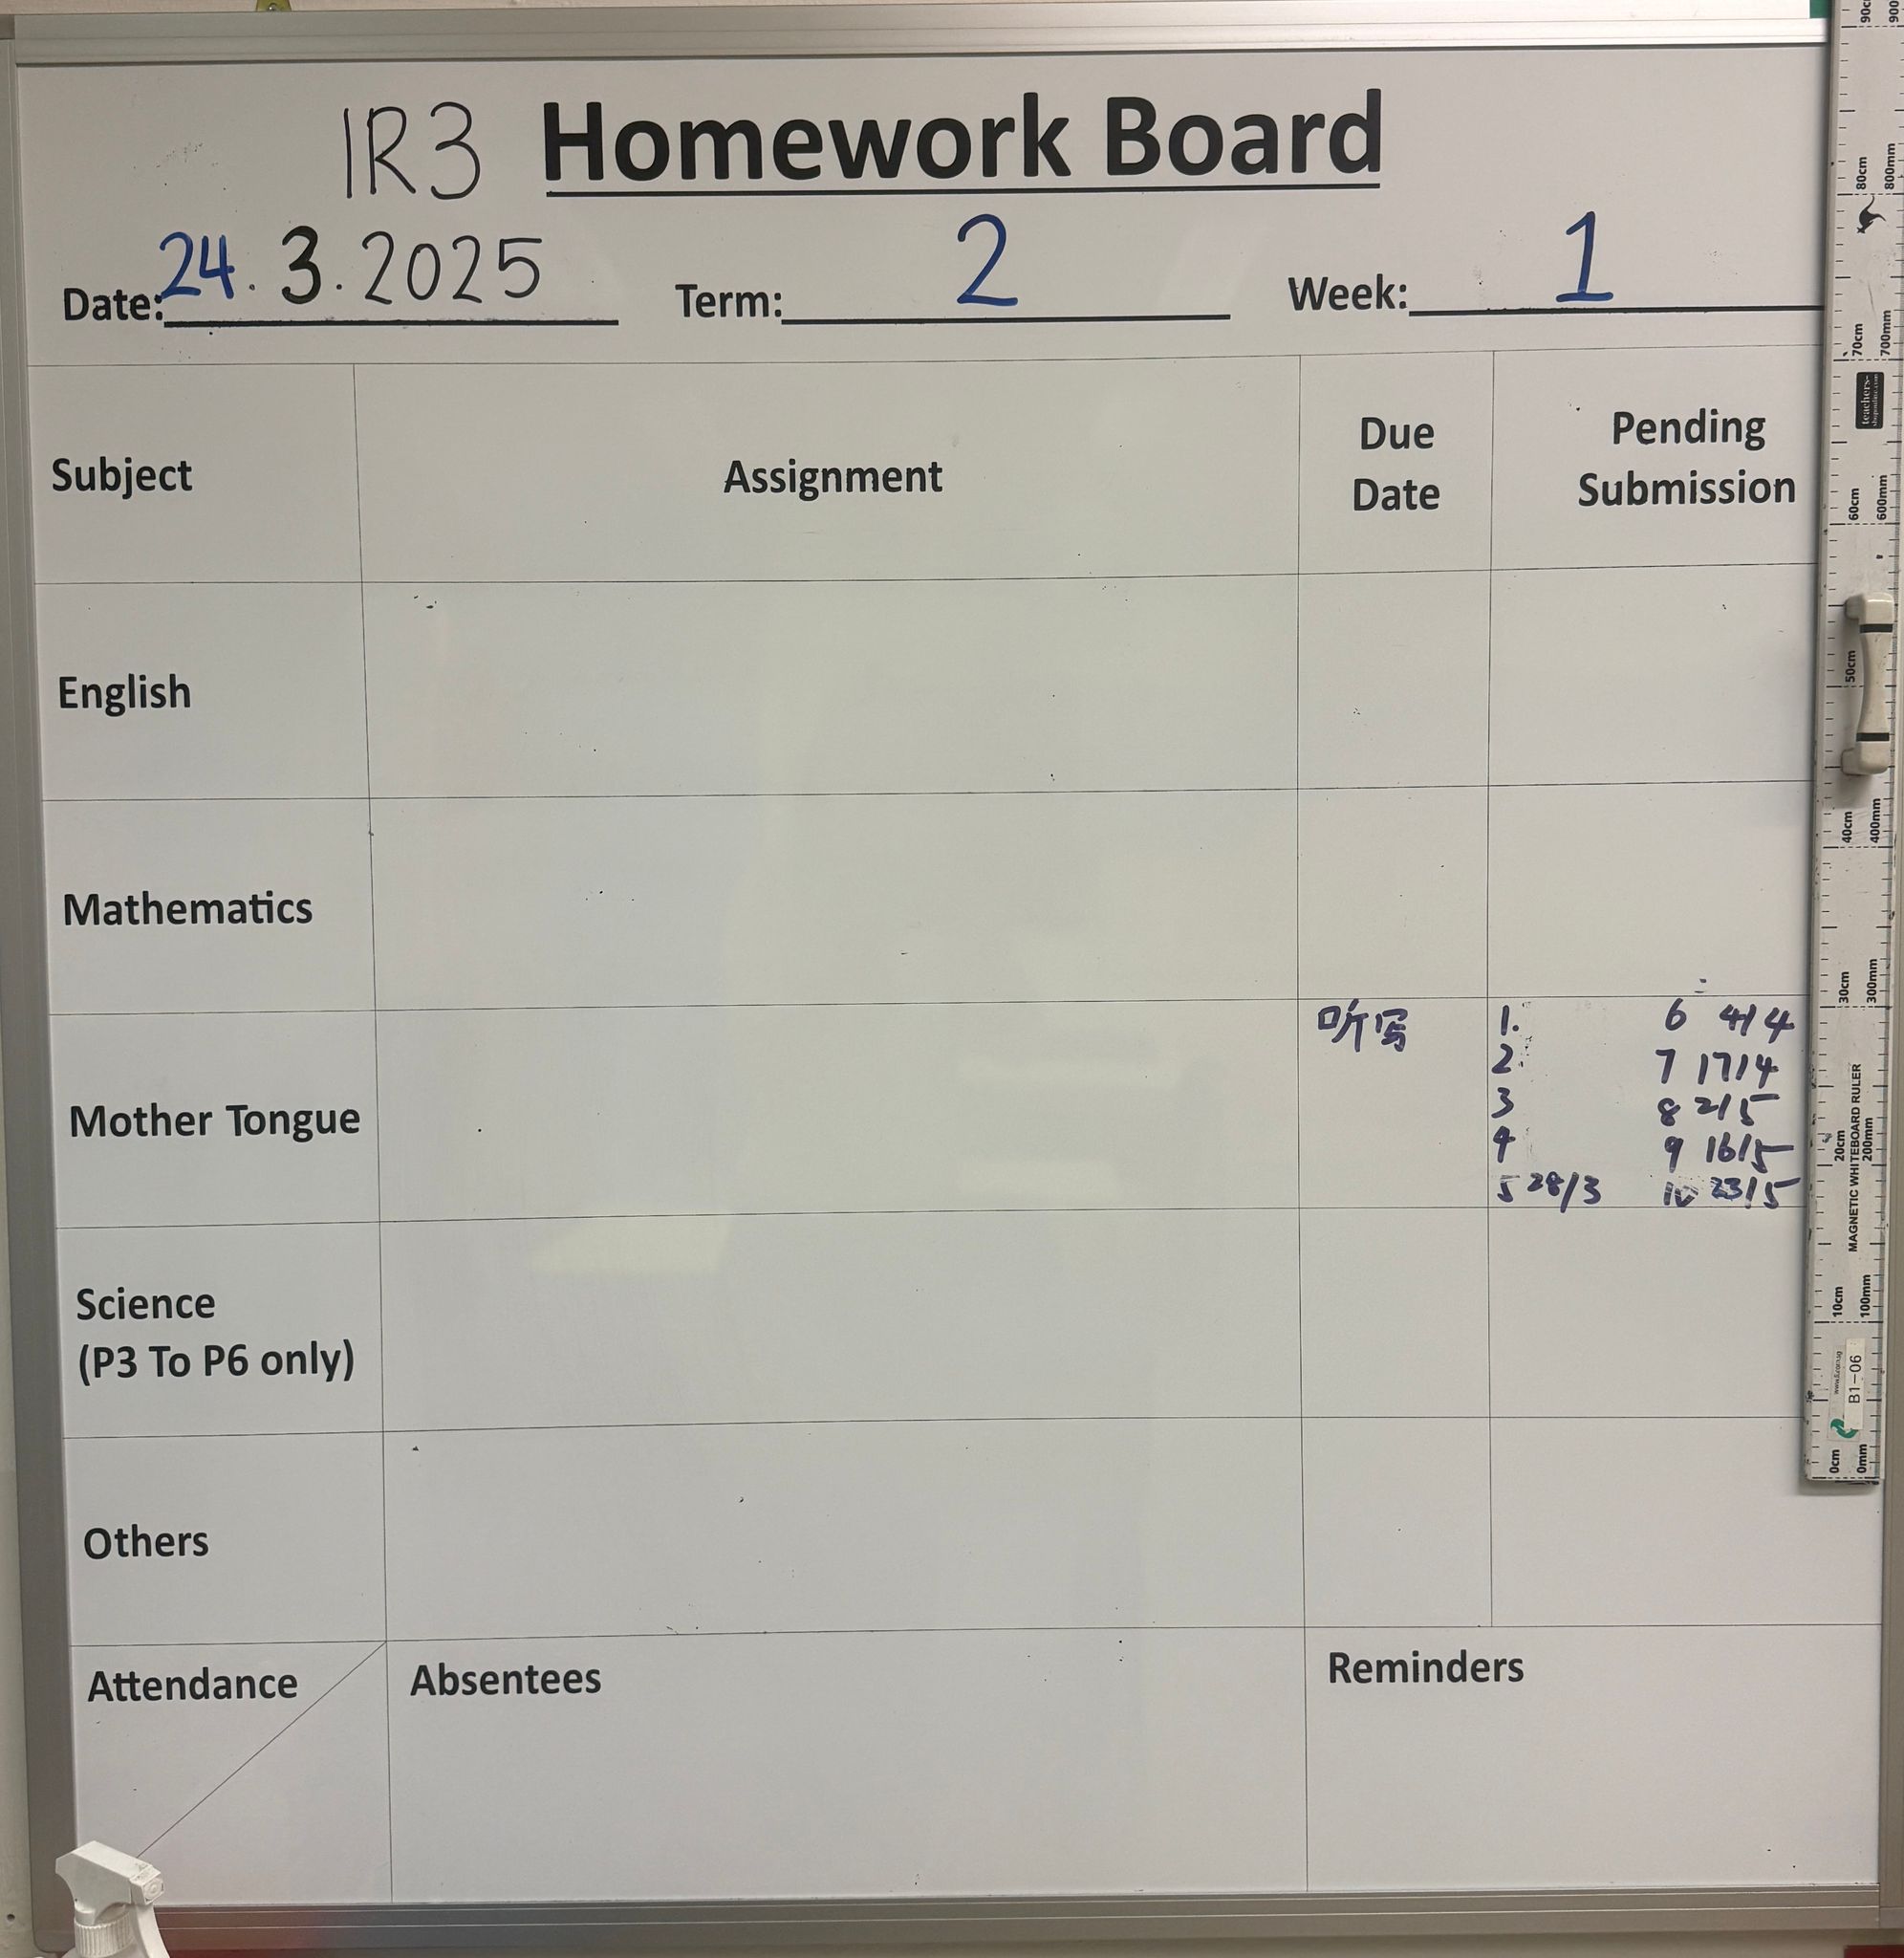 1R3 Homework Board
Date: 24.3.2025 Term: 2 Week: 1
Subject
Assignment
Due
Date
Pending
Submission
English
Mathematics
Mother Tongue
听写
1. 6 4/4
2 7 17/4
3 8 2/5
4 9 16/5
5 28/3 10 23/5
Science
(P3 To P6 only)
Others
Attendance
Absentees
Reminders
90cm
80cm 800mm
70cm 700mm
teachers-
60cm 600mm
50cm
40cm 400mm
30cm 300mm
MAGNETIC WHITEBOARD RULER
20cm 200mm
10cm 100mm
B1-06
0cm 0mm